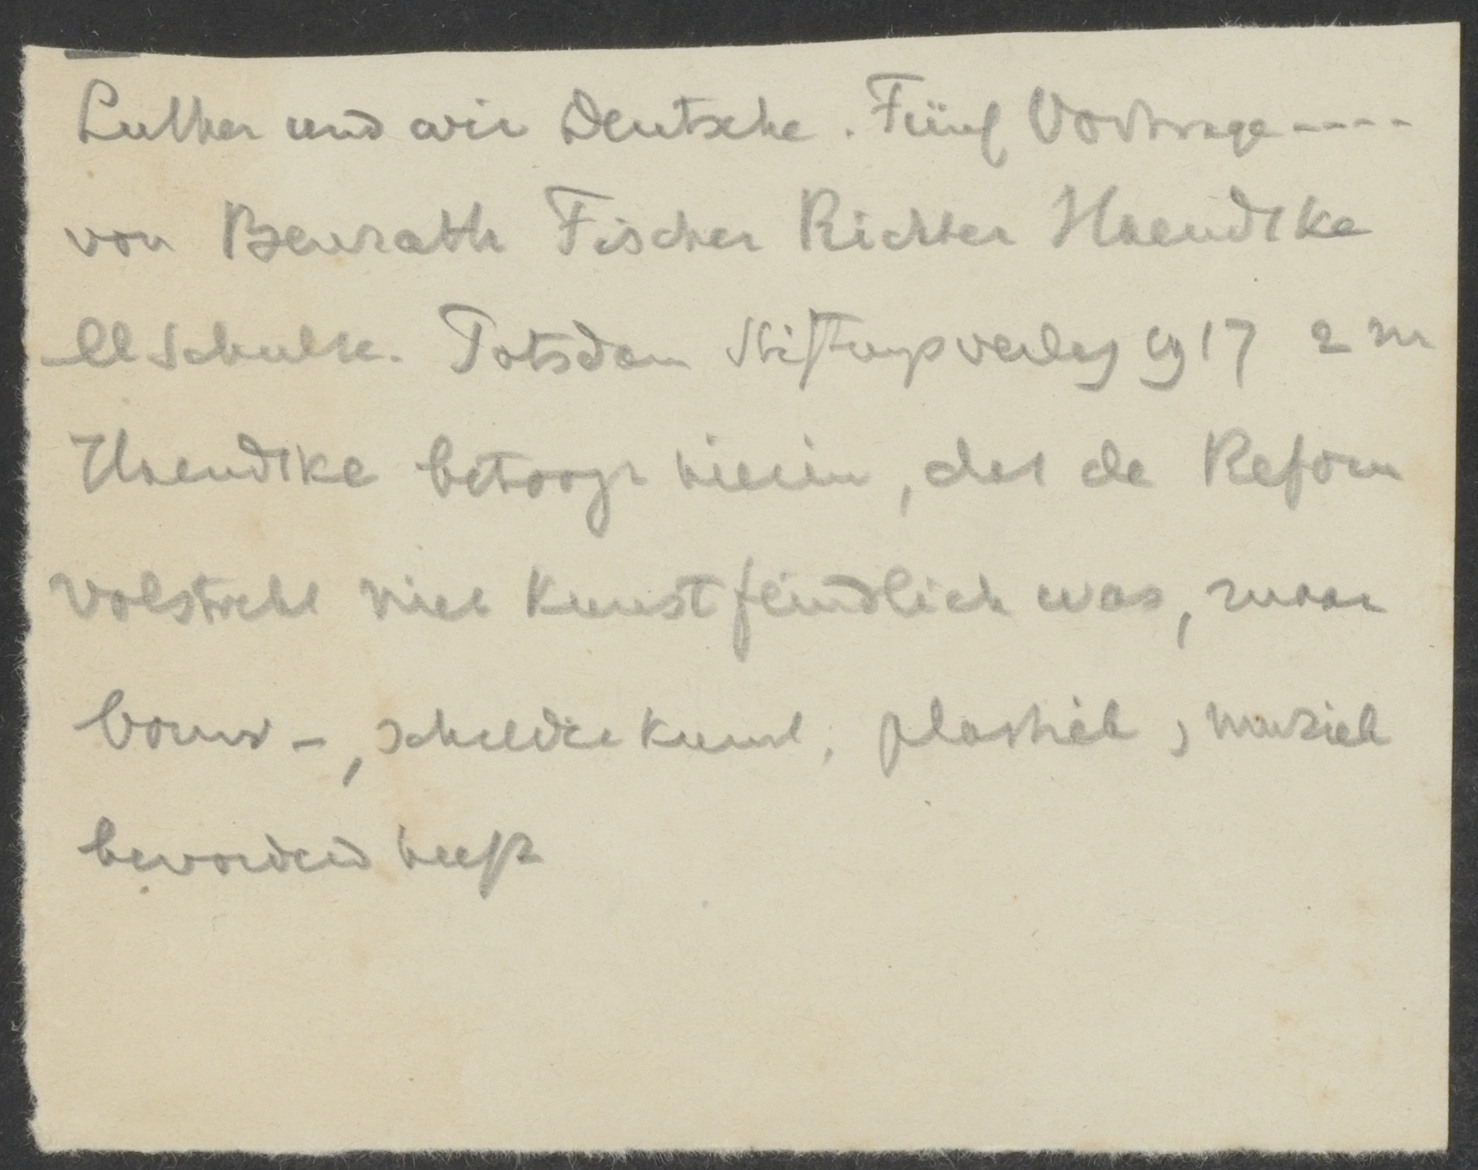 Luther und wir Deutsche. Fünf Vorträge ----
von Benrath Fischer Richter Haendtke
Schultze. Potsdam Stiftungsverlag 1917 2 M
Haendtke betoogt hierin, dat de Reform
volstrekt niet kunstfeindlich was, maar
bouw-, schilderkunst, plastiek, muziek
bevorderd heeft